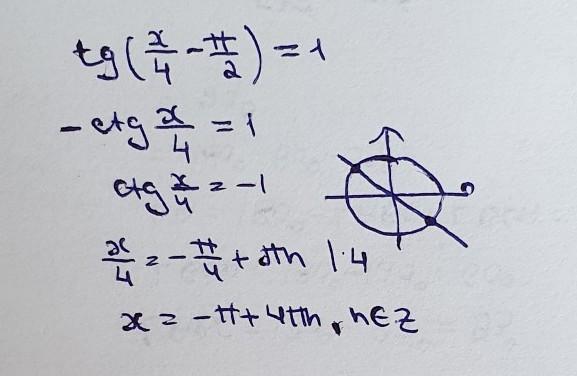 tg(x/4 - π/2) = 1
- ctg x/4 = 1
ctg x/4 = -1
x/4 = -π/4 + πn | ·4
x = -π + 4πn, n∈Z